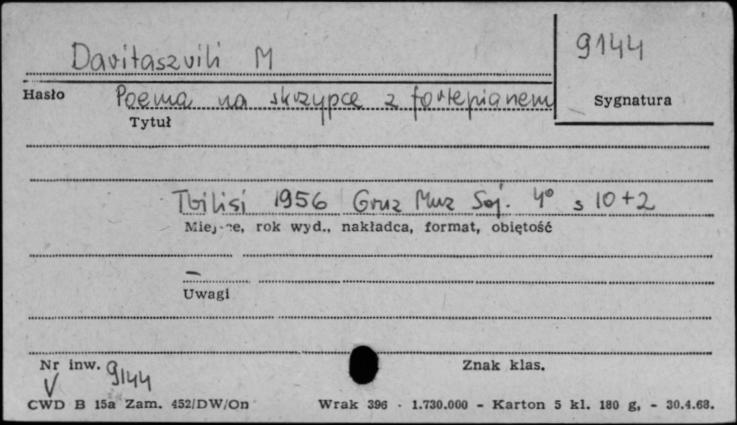 Davitaszvili M
9144
Hasło
Sygnatura
Poema na skrzypce z fortepianem
Tytuł
Tbilisi 1956 Gruz Muz Soj. 4° s 10+2
Miejsce, rok wyd., nakładca, format, objętość
–
Uwagi
Nr inw. 9144
Znak klas.
V
CWD B 15a Zam. 452/DW/On Wrak 396 - 1.730.000 - Karton 5 kl. 180 g, - 30.4.68.